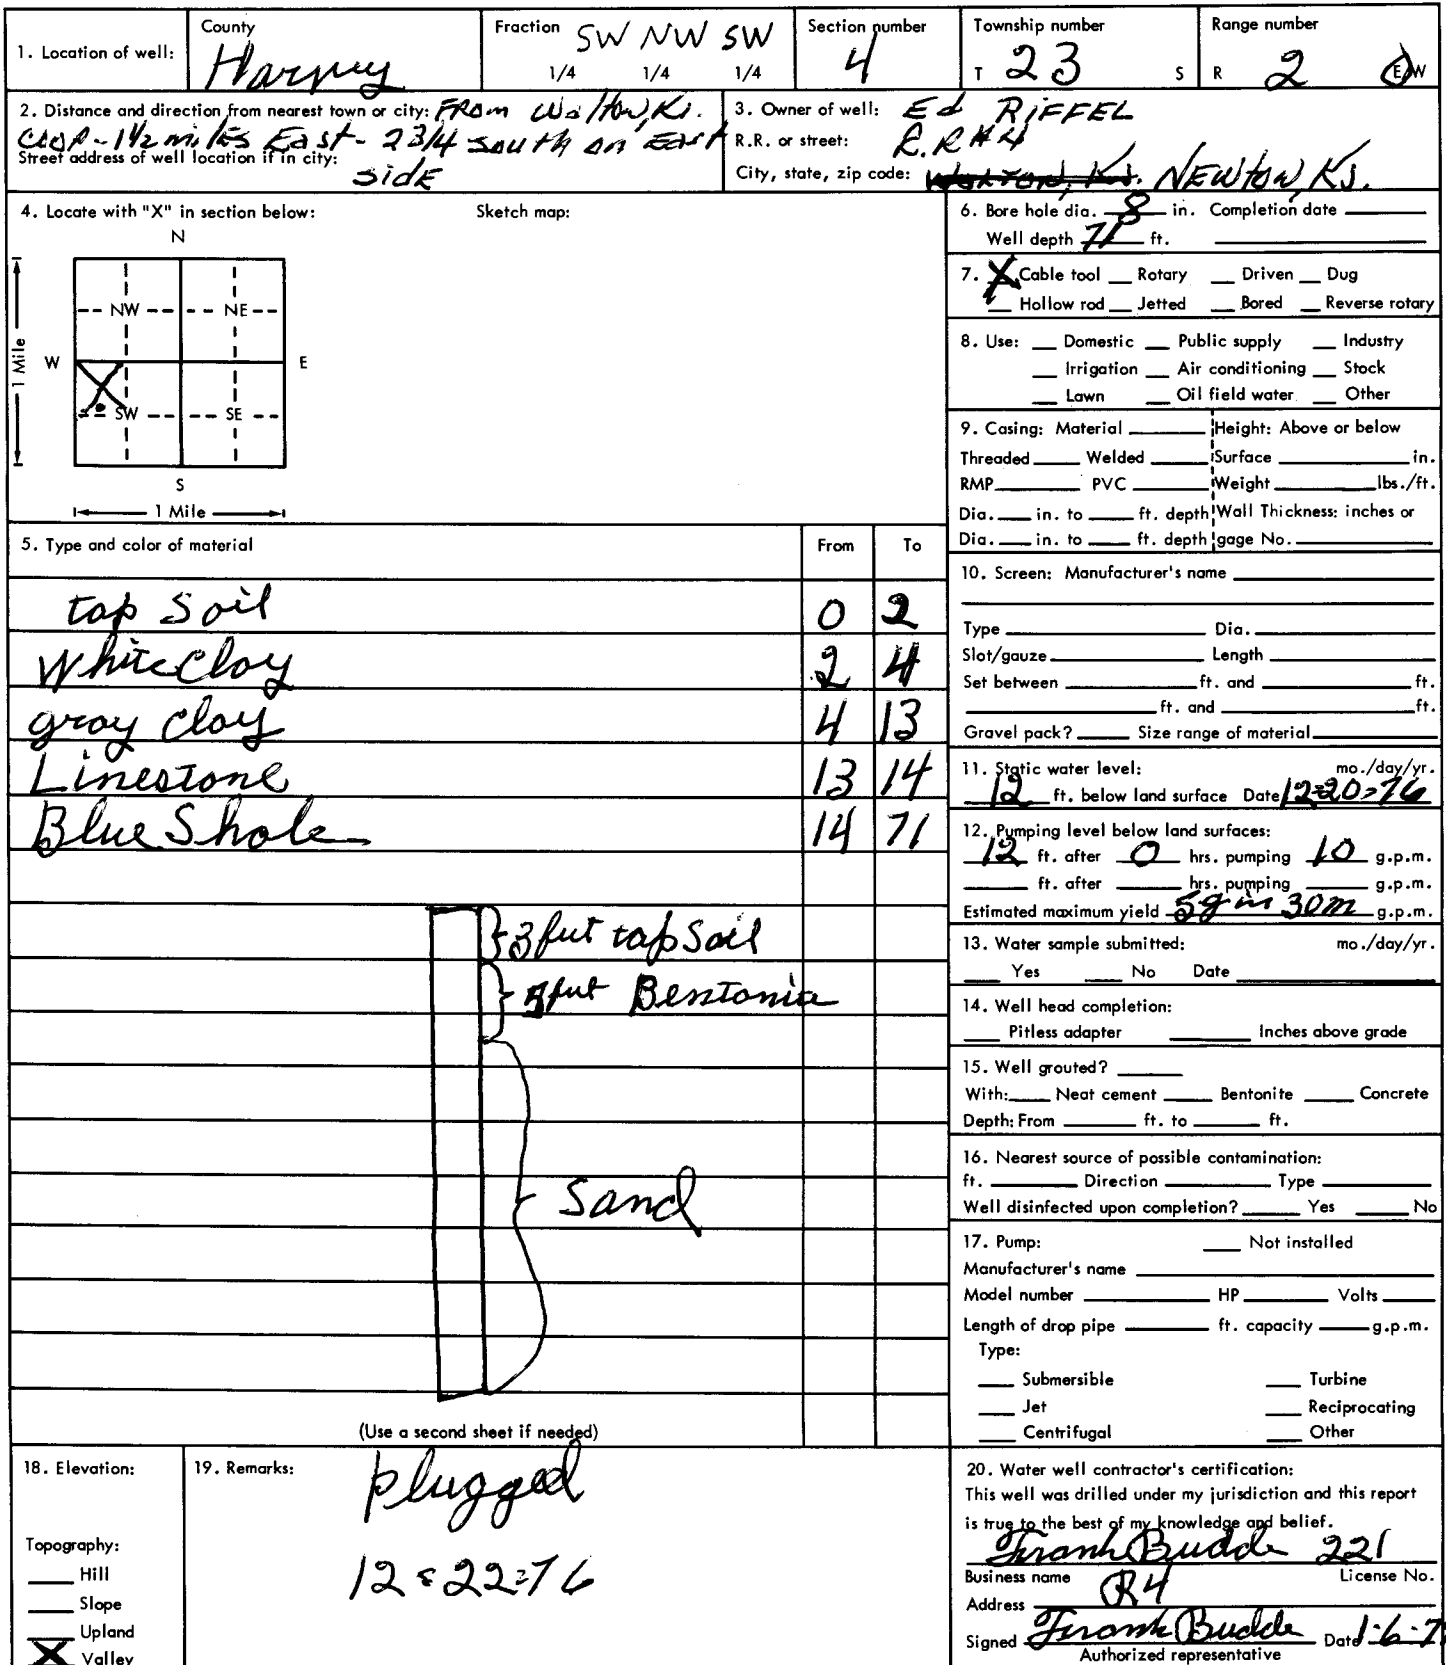 1. Location of well:
County
Harvey
Fraction SW NW SW
1/4 1/4 1/4
Section number
4
Township number
T 23 S
Range number
R 2 E/W
2. Distance and direction from nearest town or city: FROM Walton, Ks.
1 1/2 miles East - 2 3/4 south on East
Street address of well location if in city:
side
3. Owner of well: Ed RIFFEL
R.R. or street: R.R #4
City, state, zip code: NEWTON, KS.
4. Locate with "X" in section below:
Sketch map:
N
NW NE
W E
X
SW SE
S
1 Mile
1 Mile
5. Type and color of material From To
top Soil 0 2
White Clay 2 4
gray Clay 4 13
Linestone 13 14
Blue Shale 14 71
3 feet top Soil
feet Bentonia
Sand
(Use a second sheet if needed)
6. Bore hole dia. 8 in. Completion date
Well depth 71 ft.
7. X Cable tool Rotary Driven Dug
Hollow rod Jetted Bored Reverse rotary
8. Use: Domestic Public supply Industry
Irrigation Air conditioning Stock
Lawn Oil field water Other
9. Casing: Material Height: Above or below
Threaded Welded Surface in.
RMP PVC Weight lbs./ft.
Dia. in. to ft. depth Wall Thickness: inches or
Dia. in. to ft. depth gage No.
10. Screen: Manufacturer's name
Type Dia.
Slot/gauze Length
Set between ft. and ft.
ft. and ft.
Gravel pack? Size range of material
11. Static water level: mo./day/yr.
12 ft. below land surface Date 12-20-76
12. Pumping level below land surfaces:
12 ft. after 0 hrs. pumping 10 g.p.m.
ft. after hrs. pumping g.p.m.
Estimated maximum yield 5g in 30m g.p.m.
13. Water sample submitted: mo./day/yr.
Yes No Date
14. Well head completion:
Pitless adapter Inches above grade
15. Well grouted?
With: Neat cement Bentonite Concrete
Depth: From ft. to ft.
16. Nearest source of possible contamination:
ft. Direction Type
Well disinfected upon completion? Yes No
17. Pump: Not installed
Manufacturer's name
Model number HP Volts
Length of drop pipe ft. capacity g.p.m.
Type:
Submersible Turbine
Jet Reciprocating
Centrifugal Other
18. Elevation:
Topography:
Hill
Slope
Upland
X Valley
19. Remarks: plugged
12-22-76
20. Water well contractor's certification:
This well was drilled under my jurisdiction and this report
is true to the best of my knowledge and belief.
Frank Budde 221
Business name License No.
Address R4
Signed Frank Budde Date 1-6-7
Authorized representative